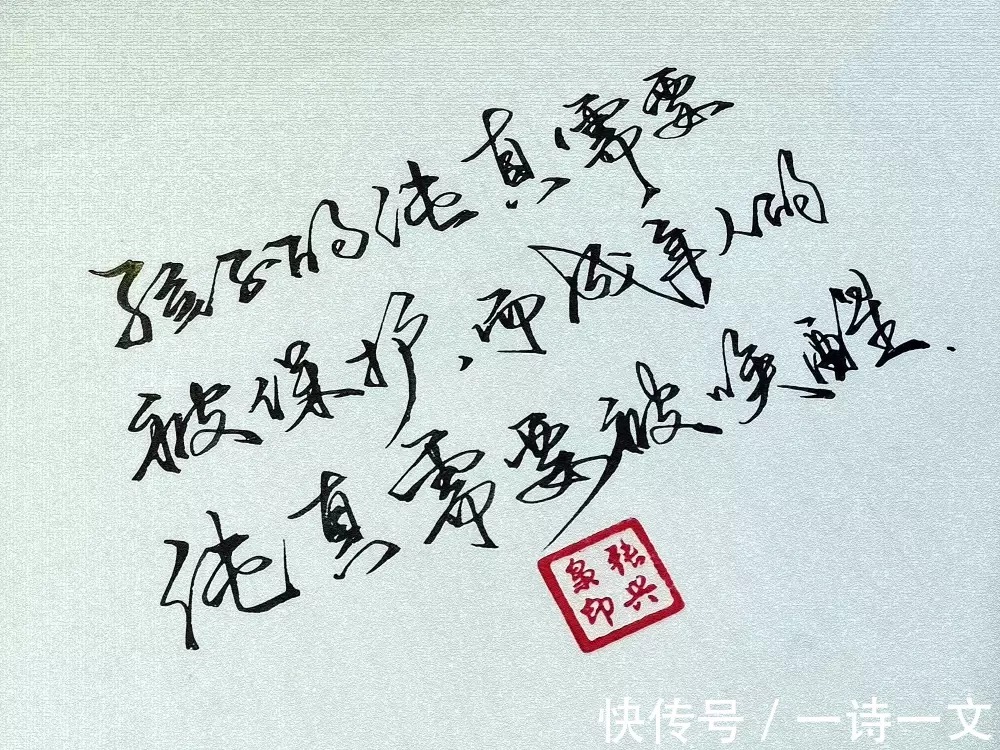 孩子的纯真需要
被保护,而成年人的
纯真需要被唤醒.
张兴
泉印
快传号 / 一诗一文